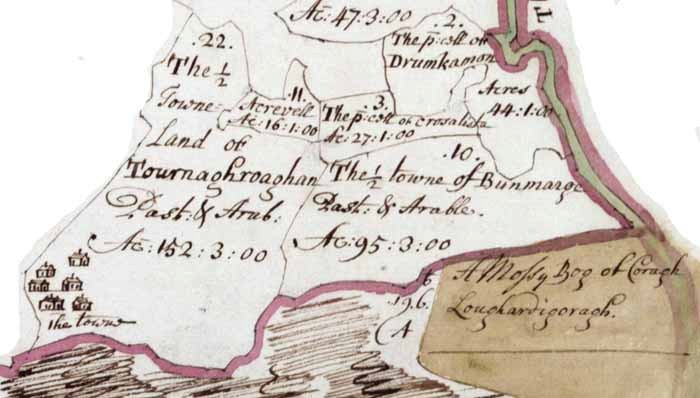 Ac: 47:3:00
.22.
The 1/2
Towne-
Land of
Tournaghroaghan
Past: & Arub:
Ac: 152:3:00
the towne
.11.
Acrevell
Ac: 16:1:00
.2.
The p:cell of
Drumkamon
Acres
44:1:00
.3.
The p:cell of Crosaliske
Ac: 27:1:00
.10.
The 1/2 towne of Bunmarge
Past: & Arable.
Ac: 95:3:00
A Mossy Bog of Coragh
Loughardigoragh.
6
19.6.
(A